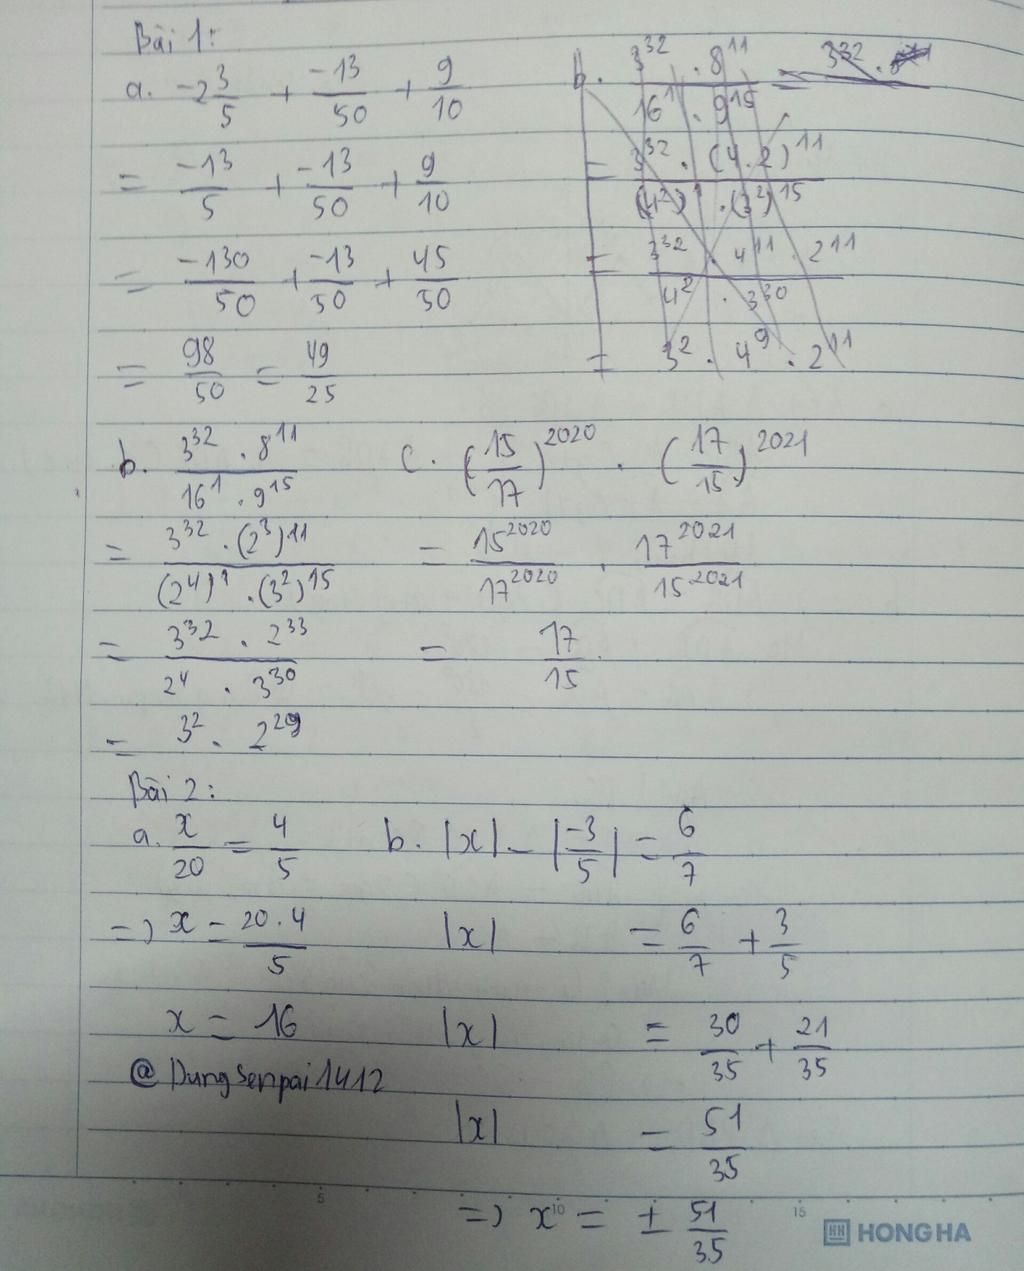 Bài 1:
a. -2 3/5 + -13/50 + 9/10
= -13/5 + -13/50 + 9/10
= -130/50 + -13/50 + 45/50
= 98/50 = 49/25
b. 3^32 . 8^11 / 16^1 . 9^15 = 3^32 .
= 3^32 . (4.2)^11 / (4^2)^1 . (3^2)^15
= 3^32 . 4^11 . 2^11 / 4^2 . 3^30
= 3^2 . 4^9 . 2^11
b. 3^32 . 8^11 / 16^1 . 9^15
= 3^32 . (2^3)^11 / (2^4)^1 . (3^2)^15
= 3^32 . 2^33 / 2^4 . 3^30
= 3^2 . 2^29
c. (15/17)^2020 . (17/15)^2021
= 15^2020/17^2020 . 17^2021/15^2021
= 17/15
Bài 2:
a. x/20 = 4/5
=> x = 20.4/5
x = 16
@ DungSenpai1412
b. |x| - |-3/5| = 6/7
|x| = 6/7 + 3/5
|x| = 30/35 + 21/35
|x| = 51/35
=> x = ± 51/35
5
10
15
HH HONG HA